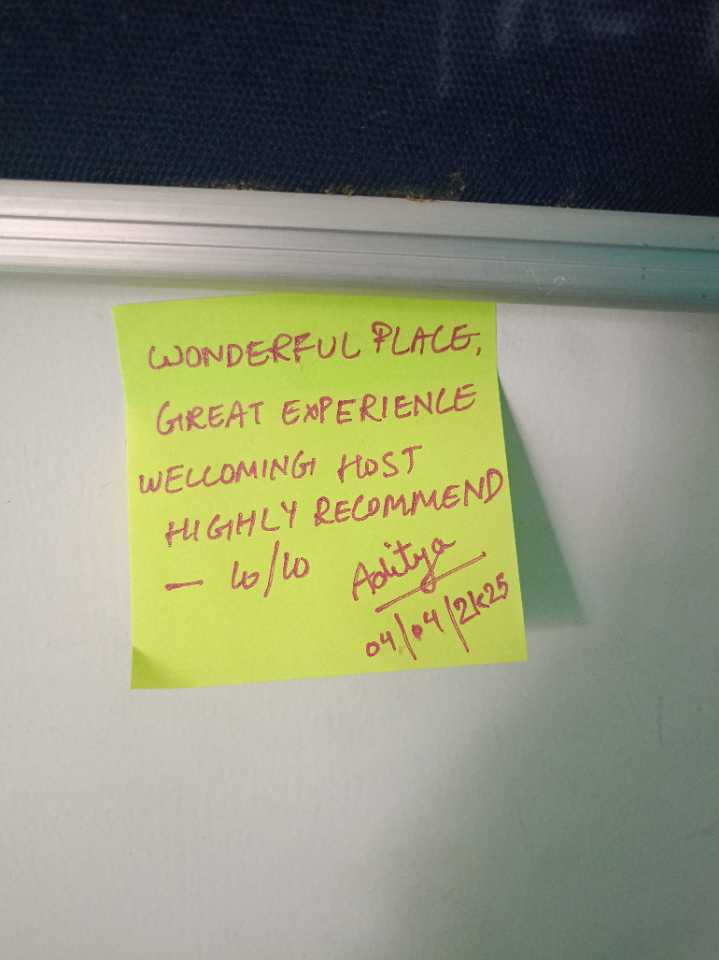 WONDERFUL PLACE,
GREAT EXPERIENCE
WELCOMING HOST
HIGHLY RECOMMEND
— 10/10 Aditya
04/04/2k25